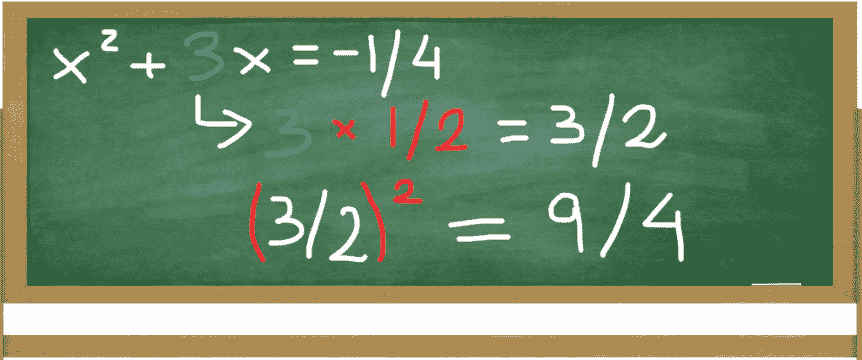 x² + 3x = -1/4
3 × 1/2 = 3/2
(3/2)² = 9/4